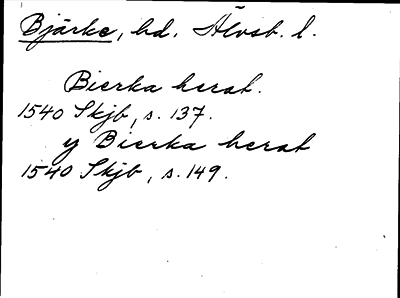 Bjärke, hd. Älvsb. l.
Bierka herat.
1540 Skjb, s. 137.
y Bierka herat
1540 Skjb, s. 149.